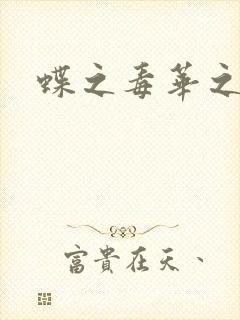 蝶之毒華之
富貴在天、